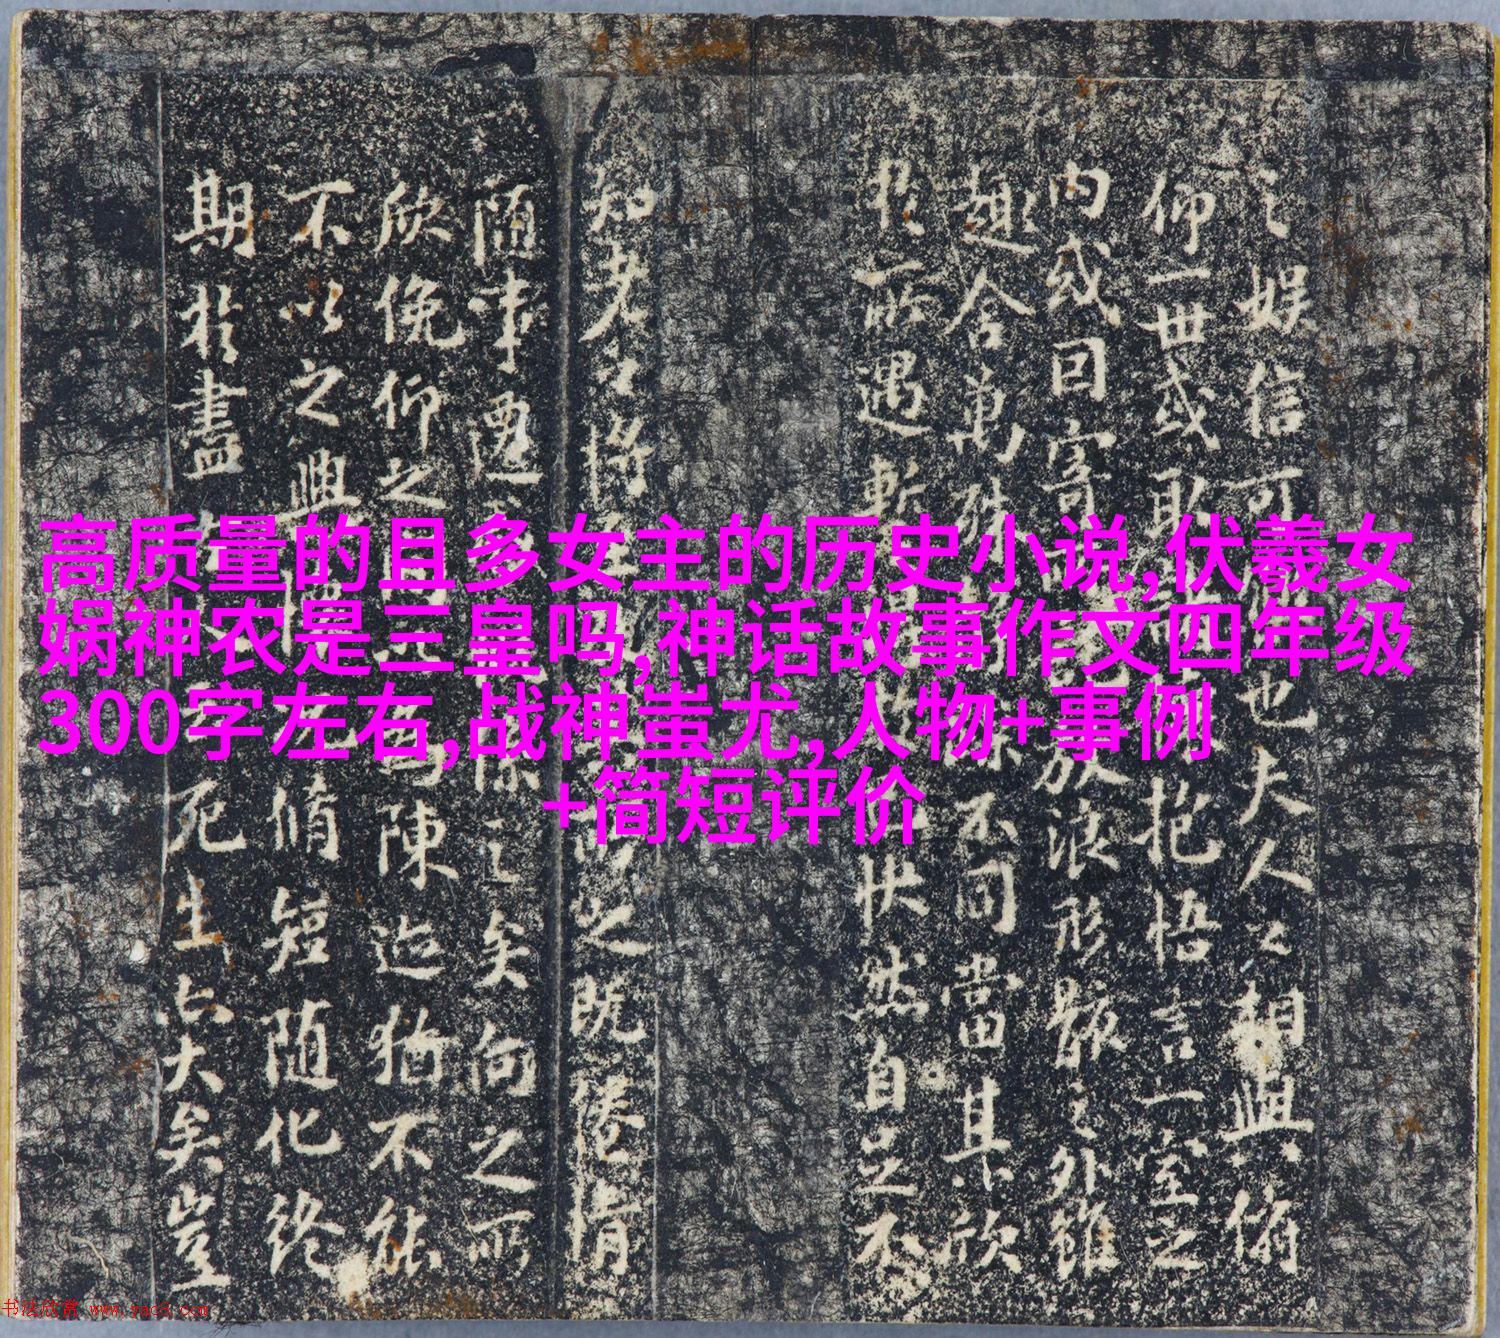 高质量的且多女主的历史小说,伏羲女
娲神农是三皇吗,神话故事作文四年级
300字左右,战神蚩尤,人物+事例
+简短评价
之娱信可也夫人之相與俯
仰一世或取諸抱悟言一室之
内或因寄放浪形骸之外雖
趣舍萬殊不同當其欣
於所遇暫快然自足不
知老之將至之既惓情
随事遷係之矣向之所
欣俛仰之為陳迹猶不能
不以之興懷脩短随化終
期於盡死生亦大矣豈
书法欣赏 www.yac8.com